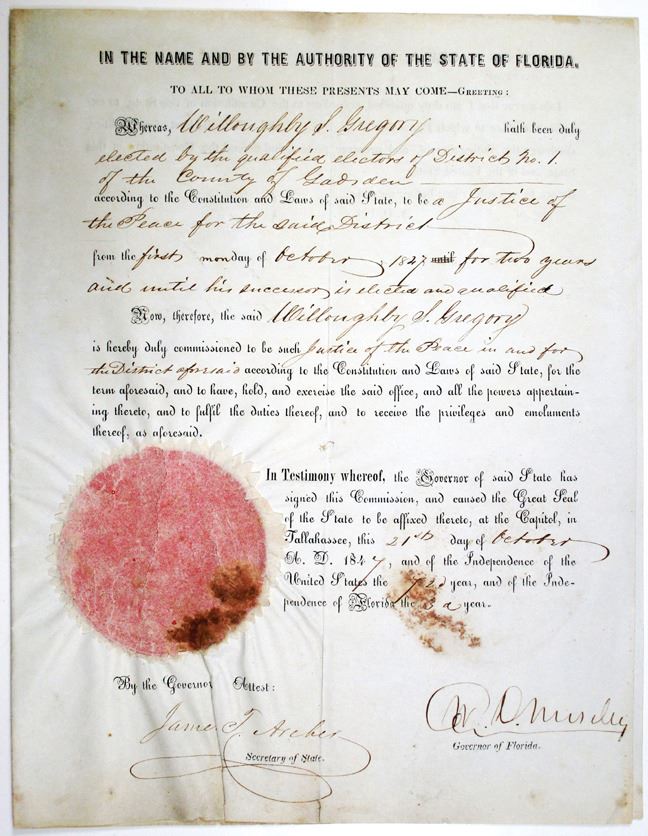 IN THE NAME AND BY THE AUTHORITY OF THE STATE OF FLORIDA.
TO ALL TO WHOM THESE PRESENTS MAY COME—GREETING:
Whereas, Willoughby S. Gregory hath been duly
elected by the qualified electors of District No. 1.
of the County of Gadsden
according to the Constitution and Laws of said State, to be a Justice of
the Peace for the said District
from the first monday of October 1847 until for two years
and until his successor is elected and qualified
Now, therefore, the said Willoughby S. Gregory
is hereby duly commissioned to be such Justice of the Peace in and for
the District aforesaid according to the Constitution and Laws of said State, for the
term aforesaid, and to have, hold, and exercise the said office, and all the powers appertain-
ing thereto, and to fulfil the duties thereof, and to receive the privileges and emoluments
thereof, as aforesaid.
In Testimony whereof, the Governor of said State has
signed this Commission, and caused the Great Seal
of the State to be affixed thereto, at the Capitol, in
Tallahassee, this 21st day of October
A. D. 1847, and of the Independence of the
United States the 72d year, and of the Inde-
pendence of Florida the 3d year.
By the Governor Attest:
James T. Archer
Secretary of State.
W. D. Moseley
Governor of Florida.